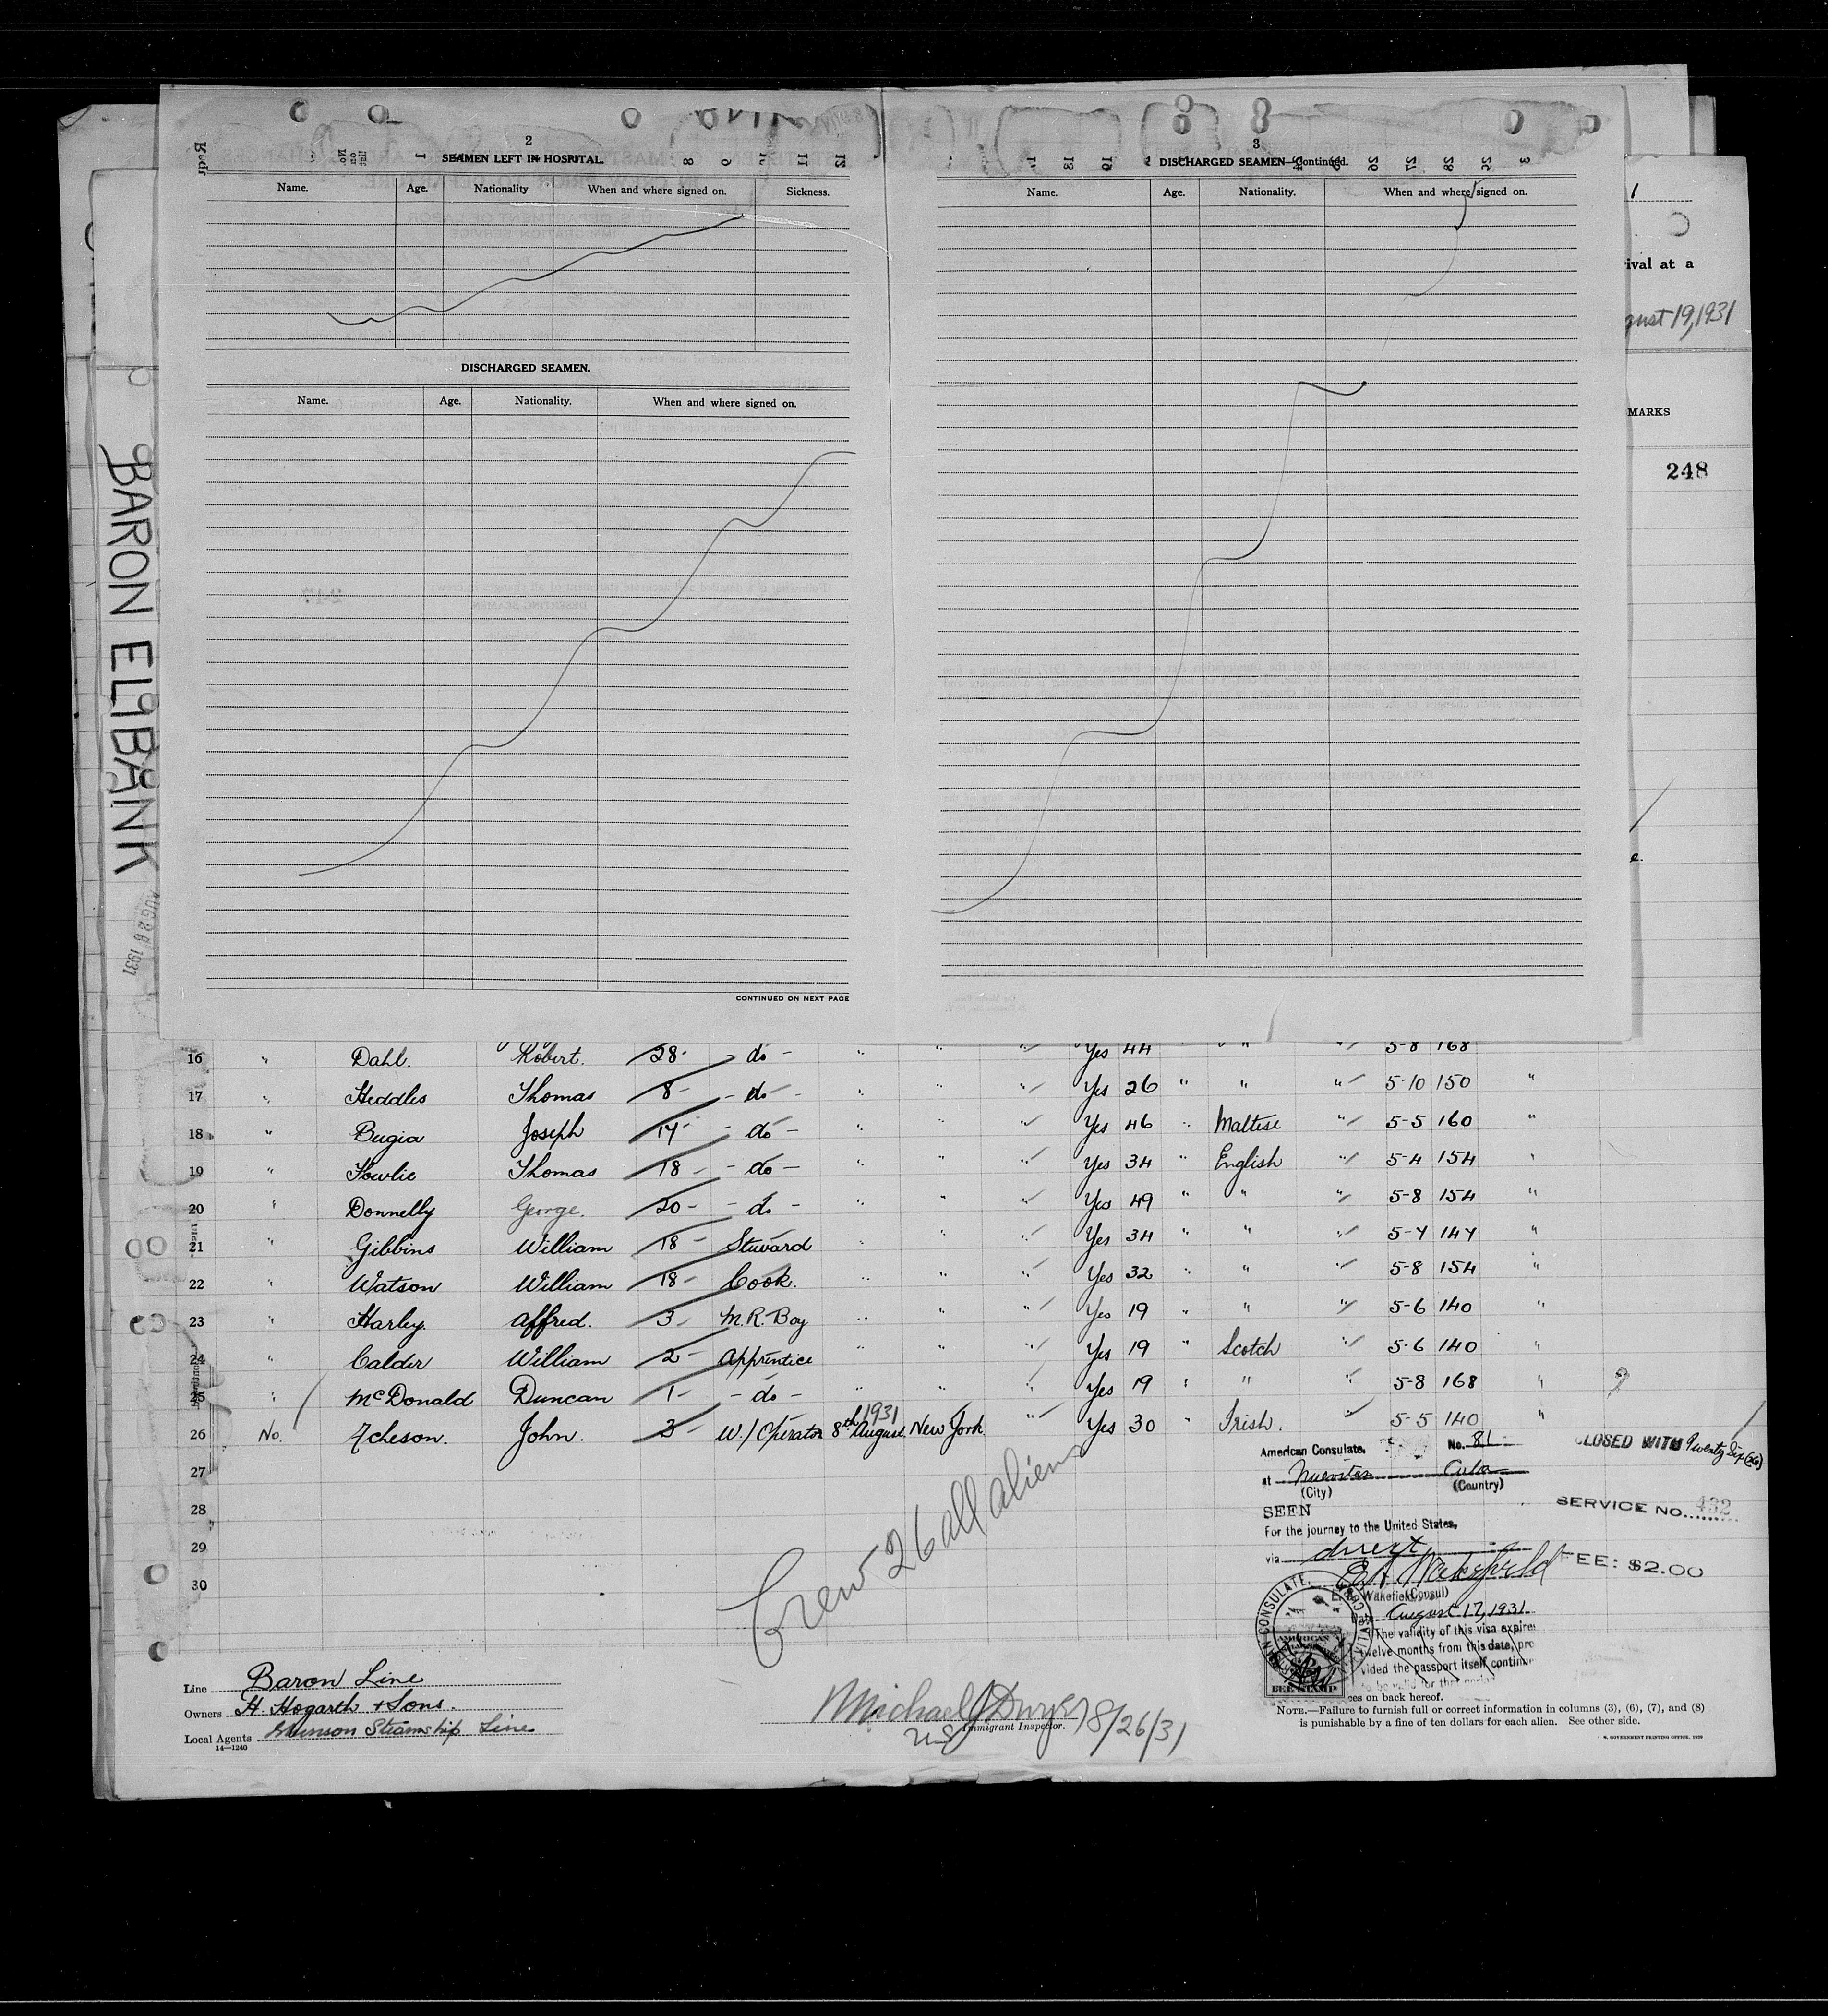 2
SEAMEN LEFT IN HOSPITAL.
Name. Age. Nationality When and where signed on. Sickness.
DISCHARGED SEAMEN.
Name. Age. Nationality. When and where signed on.
CONTINUED ON NEXT PAGE
3
DISCHARGED SEAMEN—Continued.
Name. Age. Nationality. When and where signed on.
1
ival at a
gust 19, 1931
MARKS
248
e.
BARON ELIBANK
AUG 26 1931
16 " Dahl. Robert. 28- - do - " " " Yes 44 " " " 5-8 168
17 " Heddles Thomas 8- - do - " " " Yes 26 " " " 5-10 150 "
18 " Bugia Joseph 14- - do - " " " Yes 46 " Maltese " 5-5 160 "
19 " Fowlie Thomas 18- - do - " " " Yes 34 " English " 5-4 154 "
20 " Donnelly George. 20- - do - " " " Yes 49 " " " 5-8 154 "
21 " Gibbins William 18- Steward " " " Yes 34 " " " 5-7 147 "
22 " Watson William 18- Cook. " " " Yes 32 " " " 5-8 154 "
23 " Harley. Alfred. 3- M.R. Boy " " " Yes 19 " " " 5-6 140 "
24 " Calder William 2- Apprentice " " " Yes 19 " Scotch " 5-6 140 "
25 " McDonald Duncan 1- - do - " " " Yes 19 " " " 5-8 168 "
26 No. Acheson. John. 3- W/Operator 8th August 1931 New York " Yes 30 " Irish. " 5-5 140 "
27
28
29
30
Crew 26 all aliens
CLOSED WITH Twenty Six (26)
SERVICE NO. 432
FEE: $2.00
American Consulate, No. 81
at Nuevitas Cuba
(City) (Country)
SEEN
For the journey to the United States,
via direct
E. A. Wakefield
(Consul)
Date August 17, 1931.
The validity of this visa expires
twelve months from this date, pro
vided the passport itself continu
ces on back hereof.
NOTE.—Failure to furnish full or correct information in columns (3), (6), (7), and (8)
is punishable by a fine of ten dollars for each alien. See other side.
Line Baron Line
Owners H. Hogarth & Sons.
Local Agents Munson Steamship Line
14—1240
Michael J Dwyer 8/26/31
U.S. Immigrant Inspector.